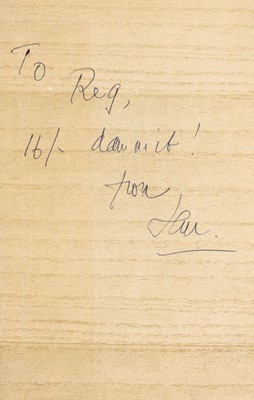 To
Reg,
16/- damnit!
from
Ian.